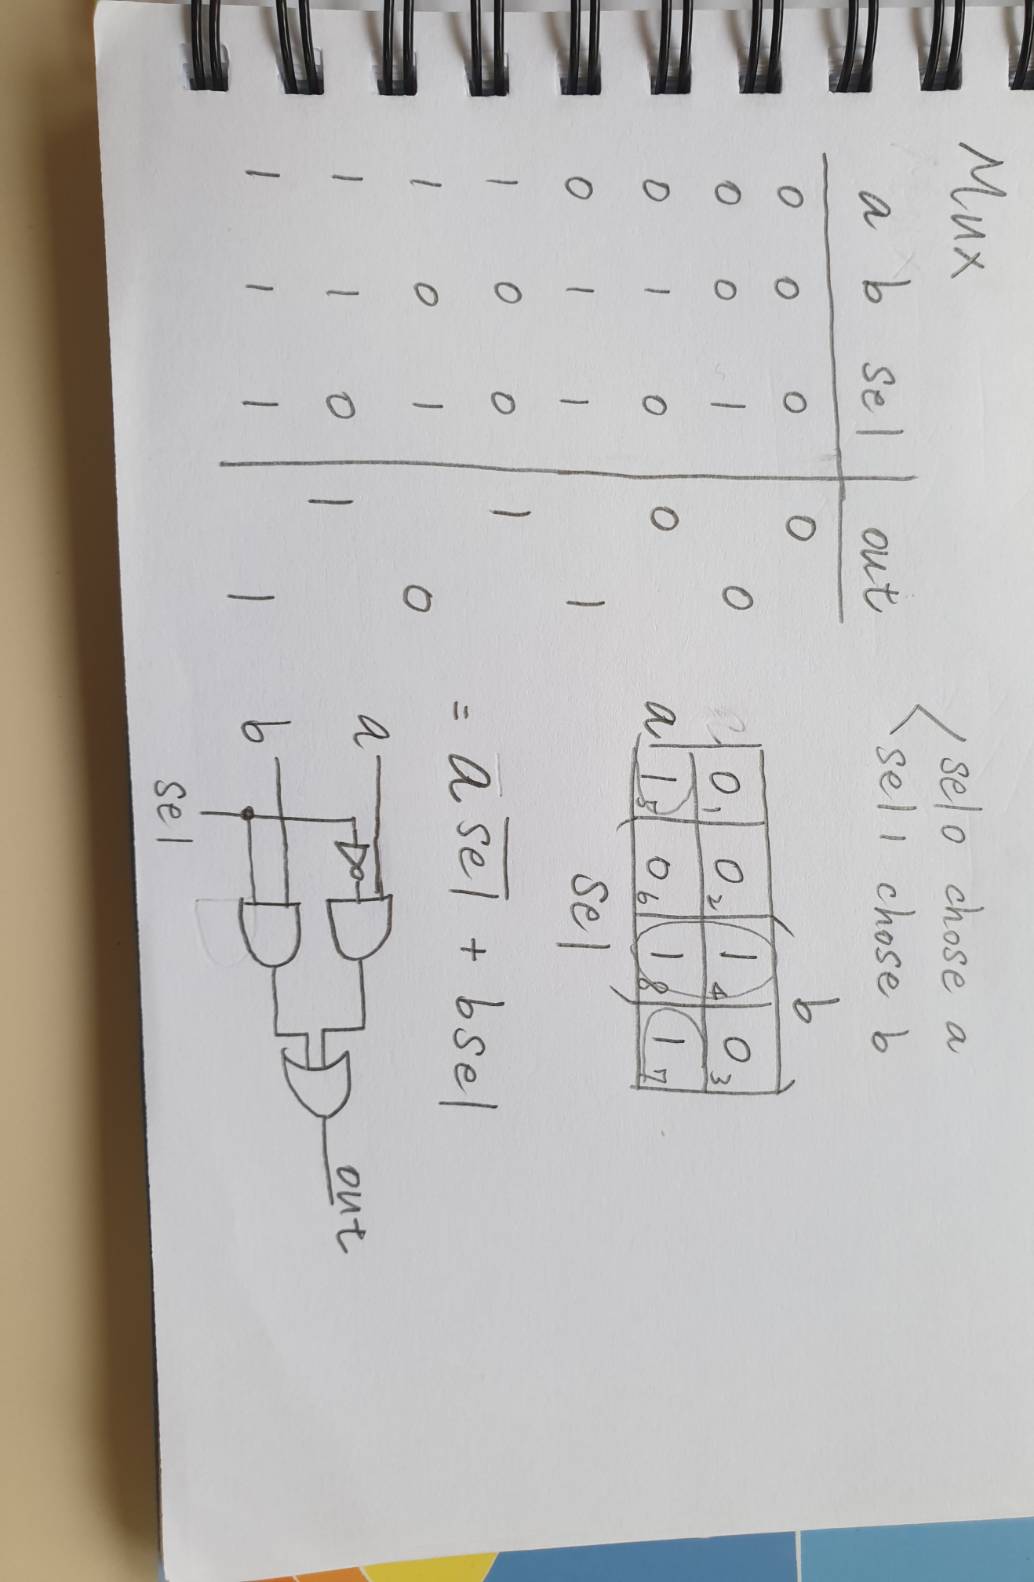 Mux
a b sel out
0 0 0 0
0 0 1 0
0 1 0 0
0 1 1 1
1 0 0 1
1 0 1 0
1 1 0 1
1 1 1 1
sel0 chose a
sel1 chose b
b
0₁ 0₂ 1₄ 0₃
a 1₅ 0₆ 1₈ 1₇
sel
= a s̅e̅l̅ + bsel
a
b
sel
out